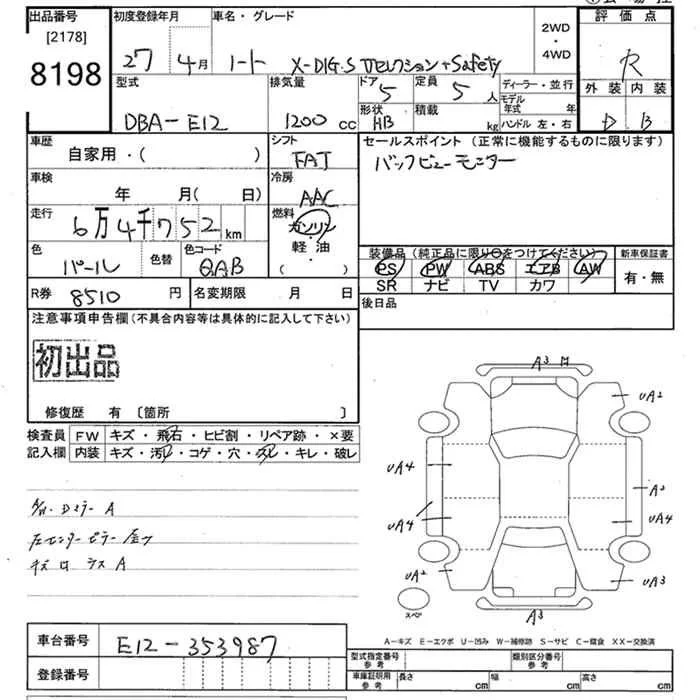 出品番号
[2178]
8198
初度登録年月
27 4月
車名・グレード
ノート X-DIG.S Vセレクション+Safety
2WD
・
4WD
評価点
R
外装 内装
D B
型式
DBA-E12
排気量
1200 CC
ドア
5
定員
5 人
形状
HB
積載
kg
ディーラー・並行
モデル年式 年
ハンドル 左・右
車歴
自家用・( )
シフト
FAT
セールスポイント(正常に機能するものに限ります)
バックビューモニター
車検
年 月( 日)
冷房
AAC
走行
6万4千752 km
燃料
ガソリン
軽・油
・
( )
色
パール
色替
色コード
QAB
装備品(純正品に限り○をつけてください)
PS PW ABS エアB AW
SR ナビ TV カワ
新車保証書
有・無
R券 8510 円
名変期限 月 日
後日品
注意事項申告欄(不具合内容等は具体的に記入して下さい)
初出品
修復歴 有 [箇所 ]
検査員
記入欄
FW キズ・飛石・ヒビ割・リペア跡・×要
内装 キズ・汚・コゲ・穴・スレ・キレ・破レ
A3
UA2
UA4
A3
UA4
UA4
UA2
UA3
A3
スペア
Dミラー A
左センターピラー
A
A-キズ E-エクボ U-凹み W-補修跡 S-サビ C-腐食 XX-交換済
車台番号
E12-353987
登録番号
型式指定番号
参考
類別区分番号
参考
車庫証明用
参考
長さ cm
幅 cm
高さ cm